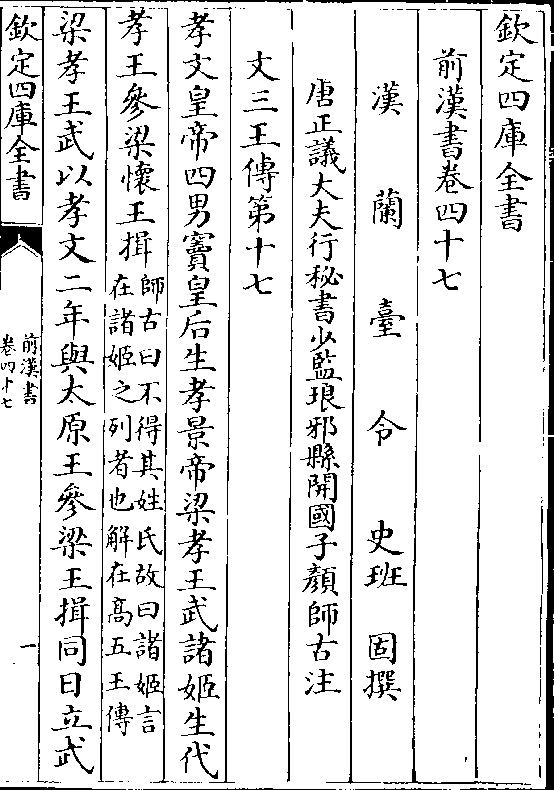 欽定四庫全書
前漢書卷四十七
漢蘭臺令史班固撰
唐正議大夫行秘書少監琅邪縣開國子顏師古注
文三王傳第十七
孝文皇帝四男竇皇后生孝景帝梁孝王武諸姬生代
孝王參梁懷王揖師古曰不得其姓氏故曰諸姬言
在諸姬之列者也解在高五王傳
梁孝王武以孝文二年與太原王參梁王揖同日立武
欽定四庫全書
前漢書
卷四十七
一